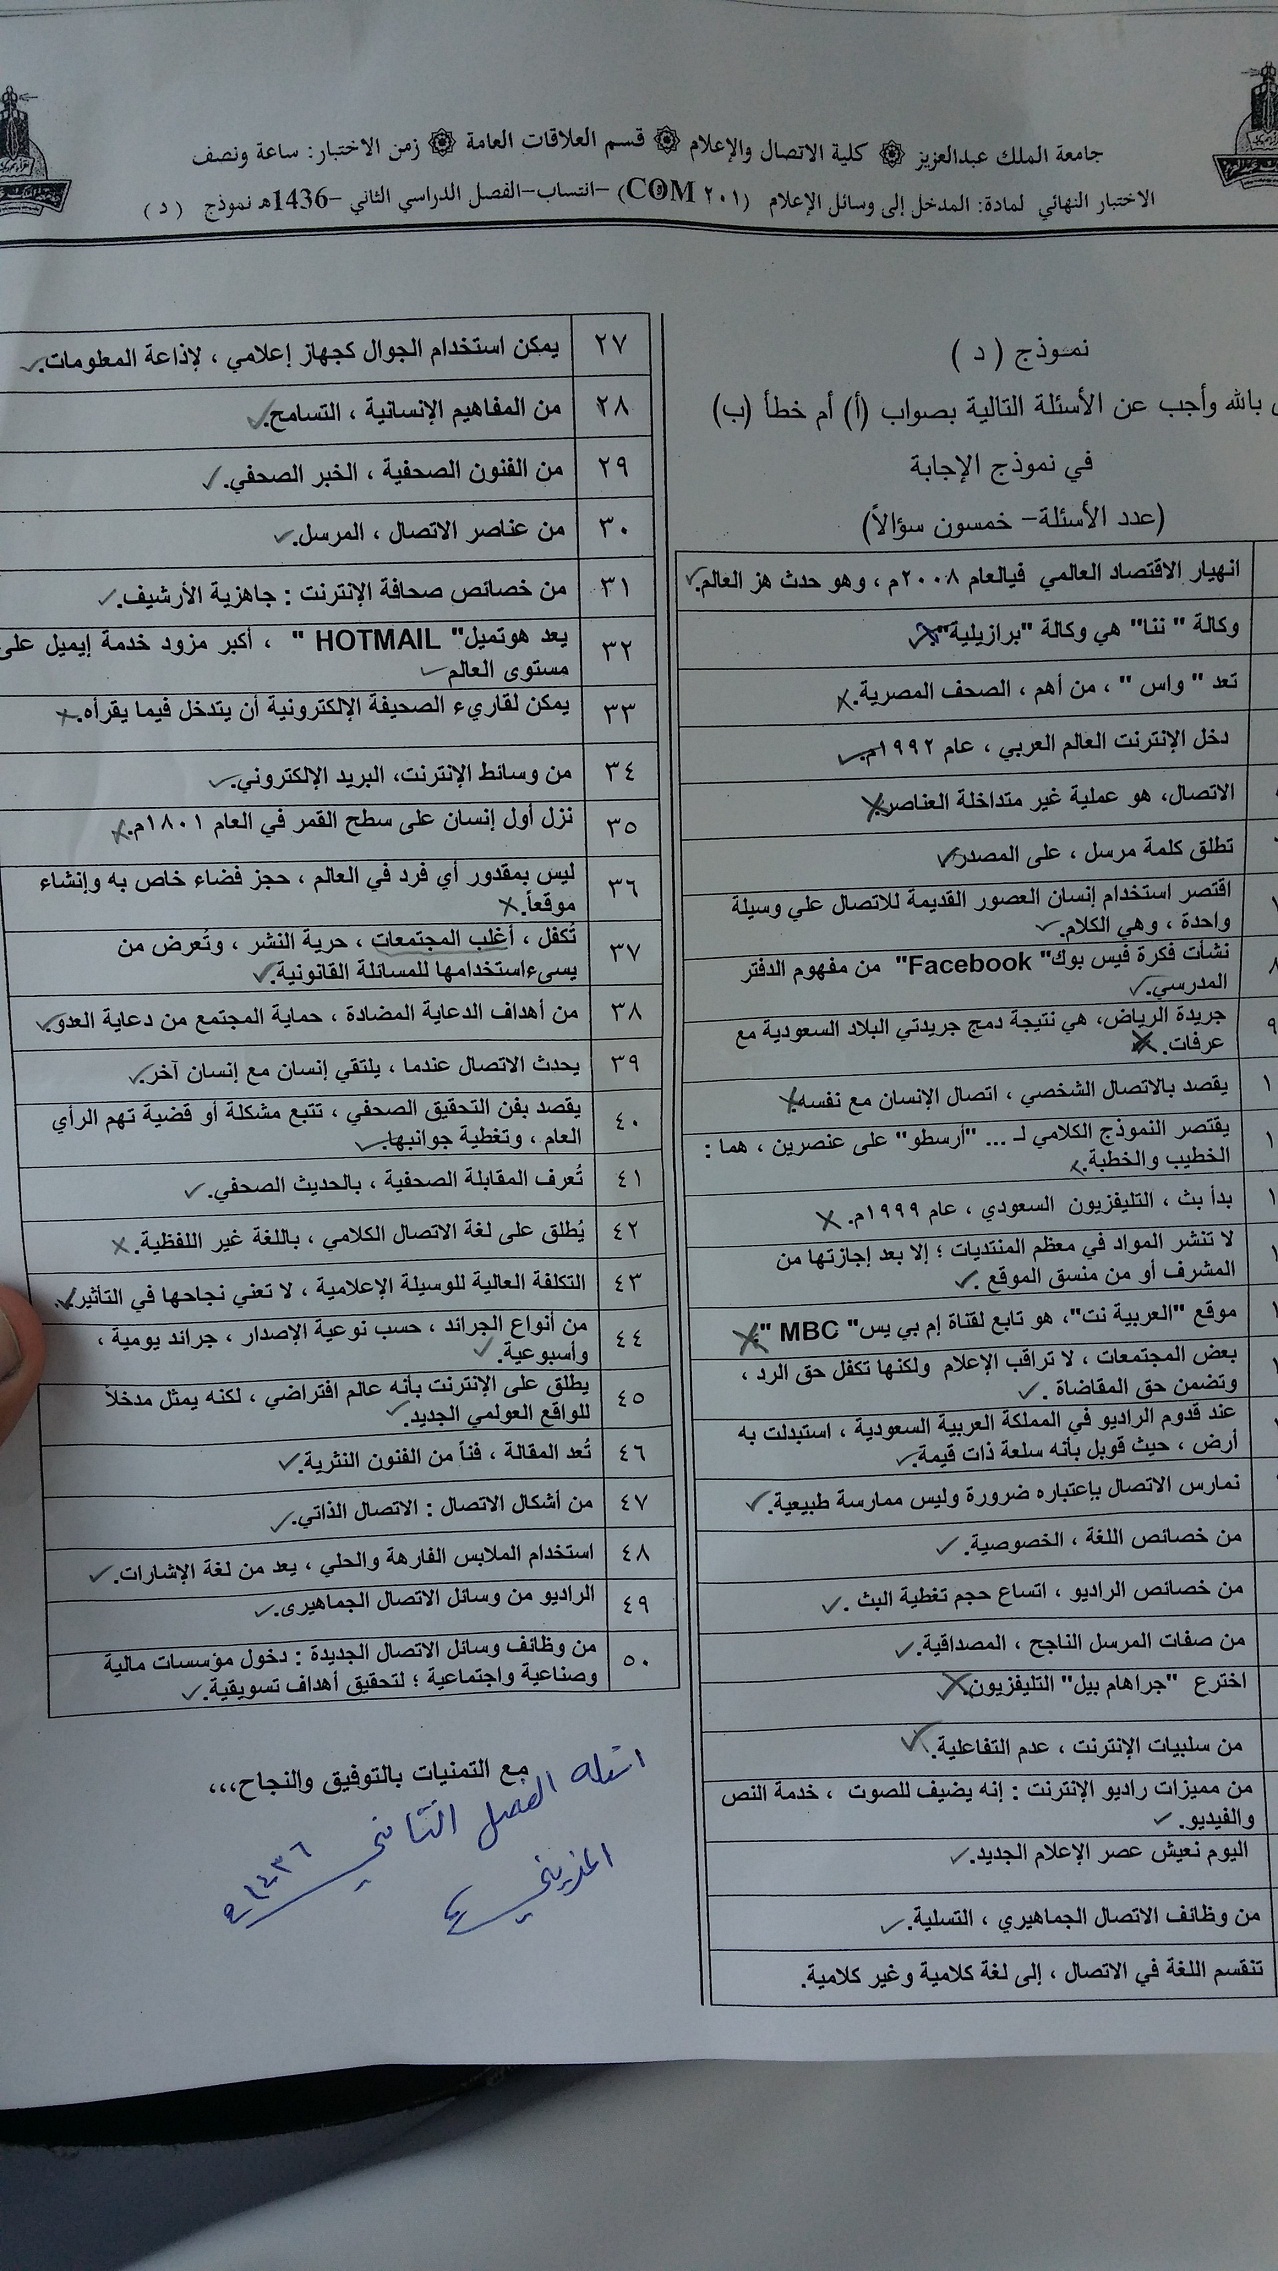 جامعة الملك عبدالعزيز ۞ كلية الاتصال والإعلام ۞ قسم العلاقات العامة ۞ زمن الاختبار: ساعة ونصف
الاختبار النهائي لمادة: المدخل إلى وسائل الإعلام (COM ٢٠١) –انتساب–الفصل الدراسي الثاني –1436هـ نموذج ( د )
نموذج ( د )
بالله وأجب عن الأسئلة التالية بصواب (أ) أم خطأ (ب)
في نموذج الإجابة
(عدد الأسئلة– خمسون سؤالاً)
انهيار الاقتصاد العالمي فيالعام ٢٠٠٨م ، وهو حدث هز العالم. ✓
وكالة " ننا" هي وكالة "برازيلية".
تعد " واس " ، من أهم ، الصحف المصرية. ✗
دخل الإنترنت العالم العربي ، عام ١٩٩٢م. ✓
الاتصال، هو عملية غير متداخلة العناصر. ✗
تطلق كلمة مرسل ، على المصدر. ✓
اقتصر استخدام إنسان العصور القديمة للاتصال علي وسيلة
واحدة ، وهي الكلام. ✓
٨ نشأت فكرة فيس بوك" Facebook" من مفهوم الدفتر
المدرسي. ✓
٩ جريدة الرياض، هي نتيجة دمج جريدتي البلاد السعودية مع
عرفات. ✗
١ يقصد بالاتصال الشخصي ، اتصال الإنسان مع نفسه. ✗
١ يقتصر النموذج الكلامي لـ ... "أرسطو" على عنصرين ، هما :
الخطيب والخطبة. ✗
١ بدأ بث ، التليفزيون السعودي ، عام ١٩٩٩م. ✗
١ لا تنشر المواد في معظم المنتديات ؛ إلا بعد إجازتها من
المشرف أو من منسق الموقع . ✓
١ موقع "العربية نت"، هو تابع لقناة إم بي يس" MBC ". ✗
بعض المجتمعات ، لا تراقب الإعلام ولكنها تكفل حق الرد ،
وتضمن حق المقاضاة . ✓
عند قدوم الراديو في المملكة العربية السعودية ، استبدلت به
أرض ، حيث قوبل بأنه سلعة ذات قيمة. ✓
نمارس الاتصال بإعتباره ضرورة وليس ممارسة طبيعية. ✓
من خصائص اللغة ، الخصوصية. ✓
من خصائص الراديو ، اتساع حجم تغطية البث . ✓
من صفات المرسل الناجح ، المصداقية. ✓
اخترع "جراهام بيل" التليفزيون. ✗
من سلبيات الإنترنت ، عدم التفاعلية. ✓
من مميزات راديو الإنترنت : إنه يضيف للصوت ، خدمة النص
والفيديو. ✓
اليوم نعيش عصر الإعلام الجديد. ✓
من وظائف الاتصال الجماهيري ، التسلية. ✓
تنقسم اللغة في الاتصال ، إلى لغة كلامية وغير كلامية.
٢٧ يمكن استخدام الجوال كجهاز إعلامي ، لإذاعة المعلومات. ✓
٢٨ من المفاهيم الإنسانية ، التسامح. ✓
٢٩ من الفنون الصحفية ، الخبر الصحفي. ✓
٣٠ من عناصر الاتصال ، المرسل. ✓
٣١ من خصائص صحافة الإنترنت : جاهزية الأرشيف. ✓
٣٢ يعد هوتميل" HOTMAIL " ، أكبر مزود خدمة إيميل على
مستوى العالم ✓
٣٣ يمكن لقاريء الصحيفة الإلكترونية أن يتدخل فيما يقرأه. ✗
٣٤ من وسائط الإنترنت، البريد الإلكتروني. ✓
٣٥ نزل أول إنسان على سطح القمر في العام ١٨٠١م. ✗
٣٦ ليس بمقدور أي فرد في العالم ، حجز فضاء خاص به وإنشاء
موقعاً. ✗
٣٧ تُكفل ، أغلب المجتمعات ، حرية النشر ، وتُعرض من
يسيءاستخدامها للمسائلة القانونية. ✓
٣٨ من أهداف الدعاية المضادة ، حماية المجتمع من دعاية العدو. ✓
٣٩ يحدث الاتصال عندما ، يلتقي إنسان مع إنسان آخر. ✓
٤٠ يقصد بفن التحقيق الصحفي ، تتبع مشكلة أو قضية تهم الرأي
العام ، وتغطية جوانبها. ✓
٤١ تُعرف المقابلة الصحفية ، بالحديث الصحفي. ✓
٤٢ يُطلق على لغة الاتصال الكلامي ، باللغة غير اللفظية. ✗
٤٣ التكلفة العالية للوسيلة الإعلامية ، لا تعني نجاحها في التأثير. ✓
٤٤ من أنواع الجرائد ، حسب نوعية الإصدار ، جرائد يومية ،
وأسبوعية. ✓
٤٥ يطلق على الإنترنت بأنه عالم افتراضي ، لكنه يمثل مدخلاً
للواقع العولمي الجديد. ✓
٤٦ تُعد المقالة ، فناً من الفنون النثرية. ✓
٤٧ من أشكال الاتصال : الاتصال الذاتي. ✓
٤٨ استخدام الملابس الفارهة والحلي ، يعد من لغة الإشارات. ✓
٤٩ الراديو من وسائل الاتصال الجماهيرى. ✓
٥٠ من وظائف وسائل الاتصال الجديدة : دخول مؤسسات مالية
وصناعية واجتماعية ؛ لتحقيق أهداف تسويقية. ✓
مع التمنيات بالتوفيق والنجاح،،،
اسئله الفصل الثاني ١٤٣٦